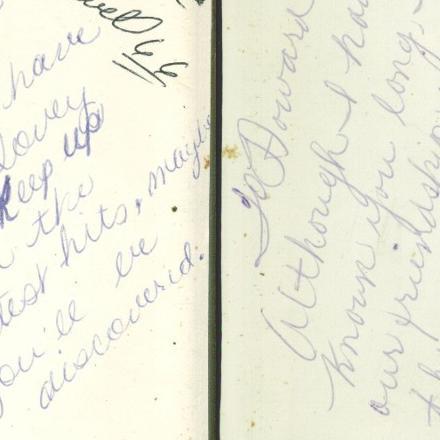 have
lovey
keep up
the
test hits, maybe
you'll be
discovered.
To Howard
Although I ha
known you long
our friendship
th